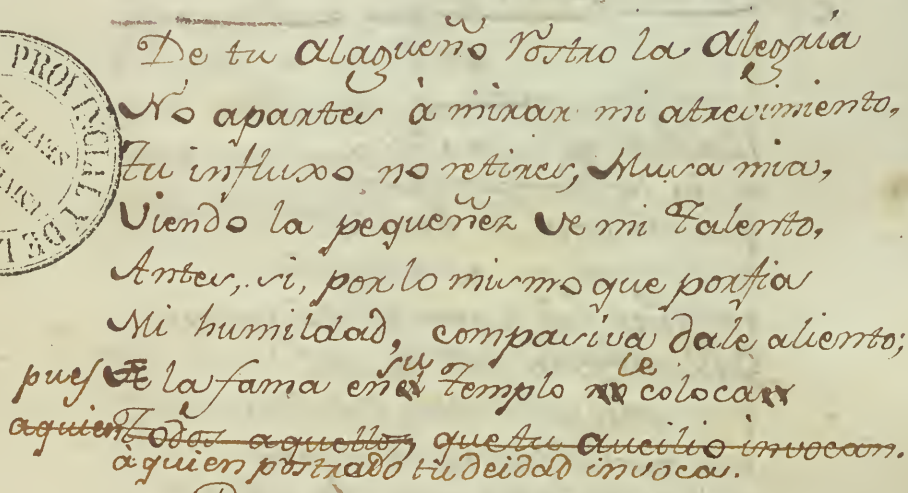 De tu Alagueño rostro la Alegria
No apartes à mirar mi atrevimiento,
Tu influxo no retires, Musa mia,
Viendo la pequeñez de mi Talento,
Antes, si, por lo mismo que porfia
Mi humildad, compasiva dale aliento;
pues de la fama en su Templo le coloca
aquien Todos aquellos, que tu aucilio invocan.
à quien postrado tu deidad invoca.
PROVINCIAL Y DE L